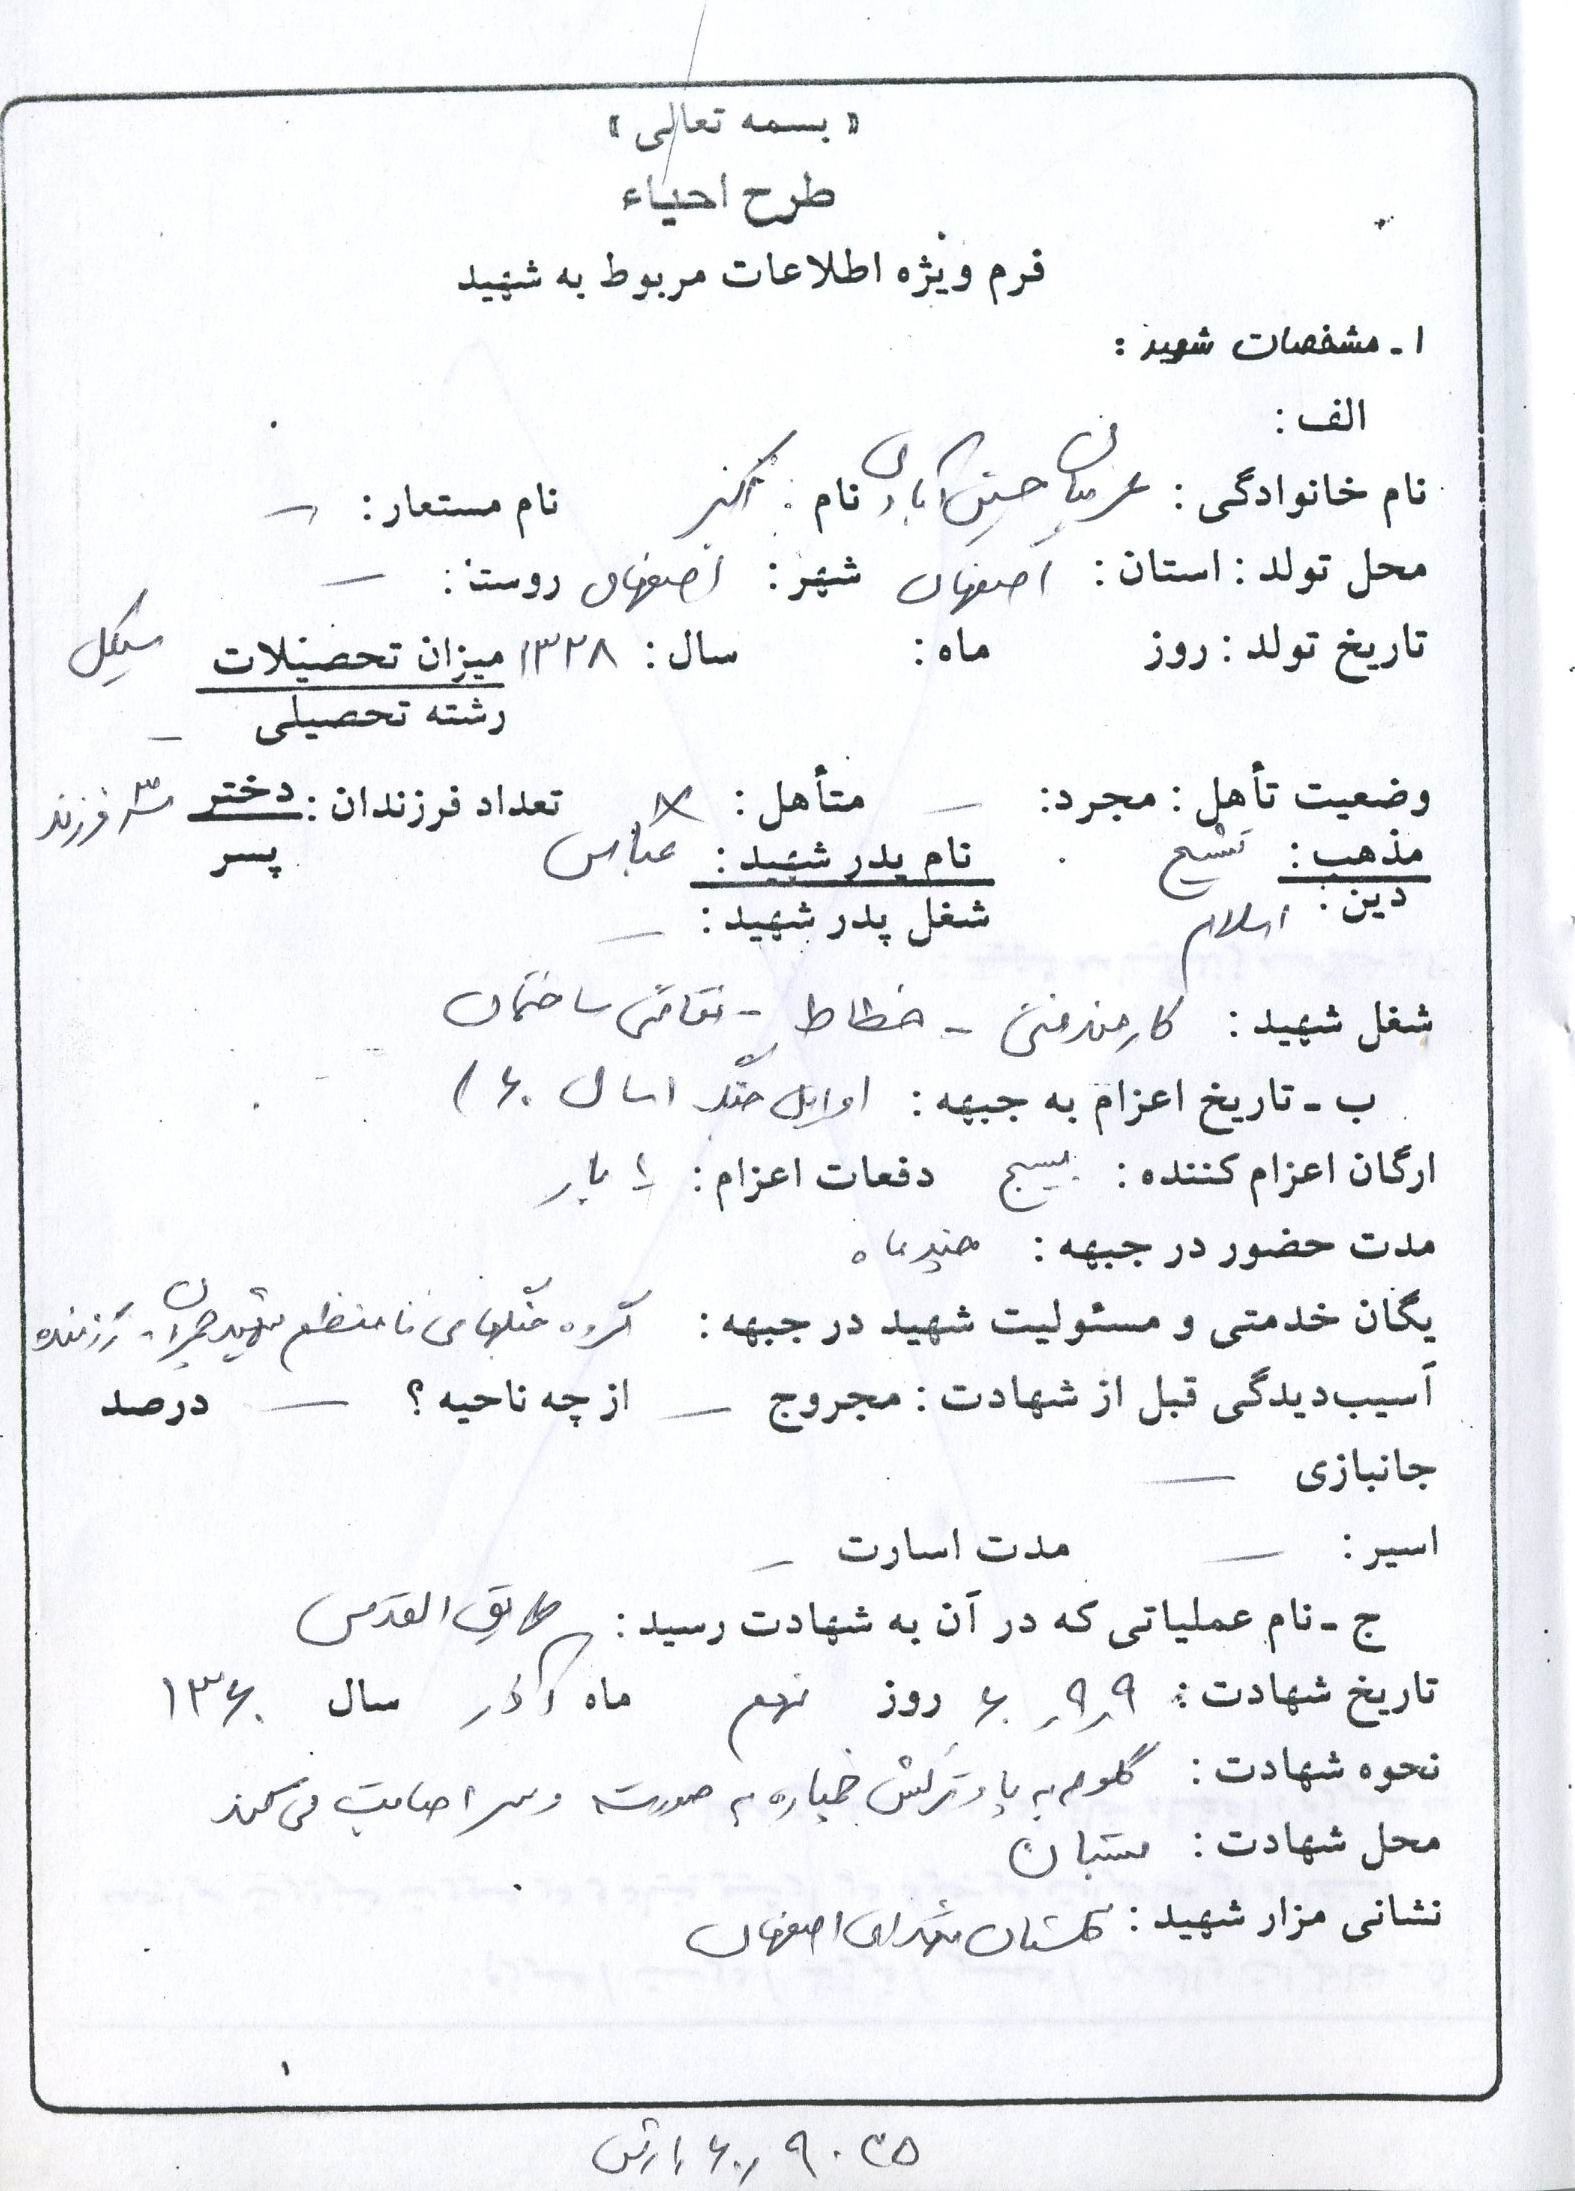 « بسمه تعالی »
طرح احیاء
فرم ویژه اطلاعات مربوط به شهید
۱ - مشخصات شهید :
الف :
نام خانوادگی : عریان حسن آبادی نام : اکبر نام مستعار : —
محل تولد : استان : اصفهان شهر : اصفهان روستا : —
تاریخ تولد : روز ماه : سال : ۱۳۲۸ میزان تحصیلات سیکل
رشته تحصیلی —
وضعیت تأهل : مجرد : — متأهل : × تعداد فرزندان : دختر ۳ فرزند
پسر
مذهب : تشیع نام پدر شهید : عباس
دین : اسلام شغل پدر شهید : —
شغل شهید : کارمند فنی - خطاط - نقاشی ساختمان
ب - تاریخ اعزام به جبهه : اوایل جنگ (سال ۶۰)
ارگان اعزام کننده : بسیج دفعات اعزام : ۱ بار
مدت حضور در جبهه : چند ماه
یگان خدمتی و مسئولیت شهید در جبهه : گروه جنگهای نامنظم شهید چمران - رزمنده
آسیب‌دیدگی قبل از شهادت : مجروح — از چه ناحیه ؟ — درصد
جانبازی —
اسیر : — مدت اسارت —
ج - نام عملیاتی که در آن به شهادت رسید : طریق القدس
تاریخ شهادت : ۶۰٫۹٫۹ روز نهم ماه آذر سال ۱۳۶۰
نحوه شهادت : گلوله به پا و ترکش خمپاره به صورت و سر اصابت می کند
محل شهادت :
نشانی مزار شهید : گلستان شهدای اصفهان
۱